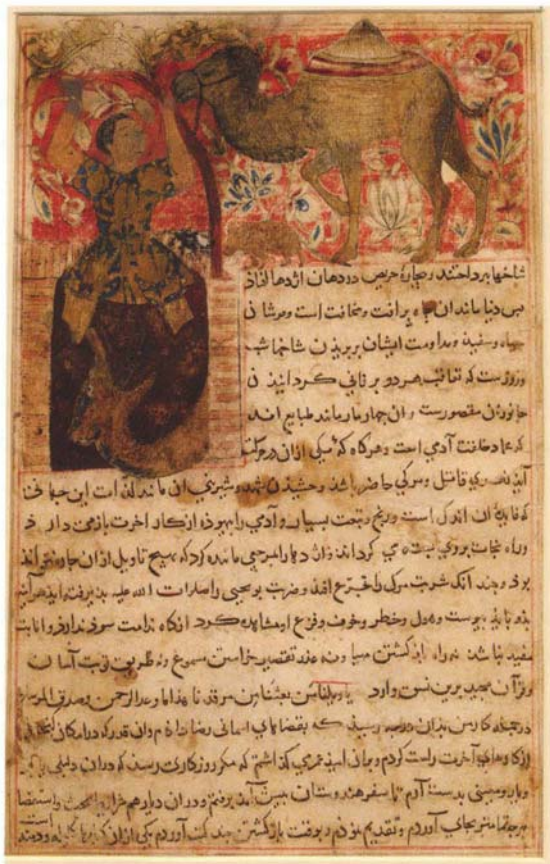 شاخها بپرداختند و بیچارهٔ حریص در دهان اژدها افتاد
پس دنیا ماند بدان چاه پر آفت و مخافت است و موشان
سیاه و سفید و مداومت ایشان بر بریدن شاخها شب
و روزست که تعاقب هر دو بر فانی گردانیدن
جانوران مقصورست و آن چهار مار مانند طبایع اند
که عماد خلقت آدمی است و هرگاه که یکی از آن در حرکت
آید زهری قاتل و مرگی حاضر باشد و چشیدن شهد و شیرینی آن مانند لذات این جهانی
که فایده آن اندک است و رنج و تبعت بسیار و آدمی را بیهوده از کار آخرت باز می دارد
و راه نجات بر وی بسته می گرداند و اژدها را مرجعی مانند کرد که بهیچ تاویل از آن چاره نتواند
بود و چند آنک شربت مرگ را تجرع افتد و ضربت بویحیی را صلوات الله علیه پذیرفته آید هر آینه
بدو باید پیوست و هول و خطر و خوف و فزع او مشاهده کرد آنگاه ندامت سود ندارد و انابت
مفید نباشد نه راه باز گشتن مهیا و نه عذر تقصیر خواستن مسموع و نه طریق توبت آسان
و قرآن مجید برین نسق وارد یا ویلنا من بعثنا من مرقدنا هذا ما وعد الرحمن و صدق المرسلون
در جمله کار من بدان درجه رسید که بقضاهای آسمانی رضا دادم و آن قدر که در امکان
از کارهای آخرت راست کردم و بدین امید عمر می گذاشتم که مگر روزگاری رسد که در آن دلیلی
و یاری و معینی بدست آرم تا سفر هندوستان پیش آمد برفتم و در آن دیار هم شرایط بحث و استقصا
هرچه تمامتر بجای آوردم و تقدیم نمودم و بوقت باز گشتن چند کتب آوردم یکی از آن کتاب کلیله و دمنه است